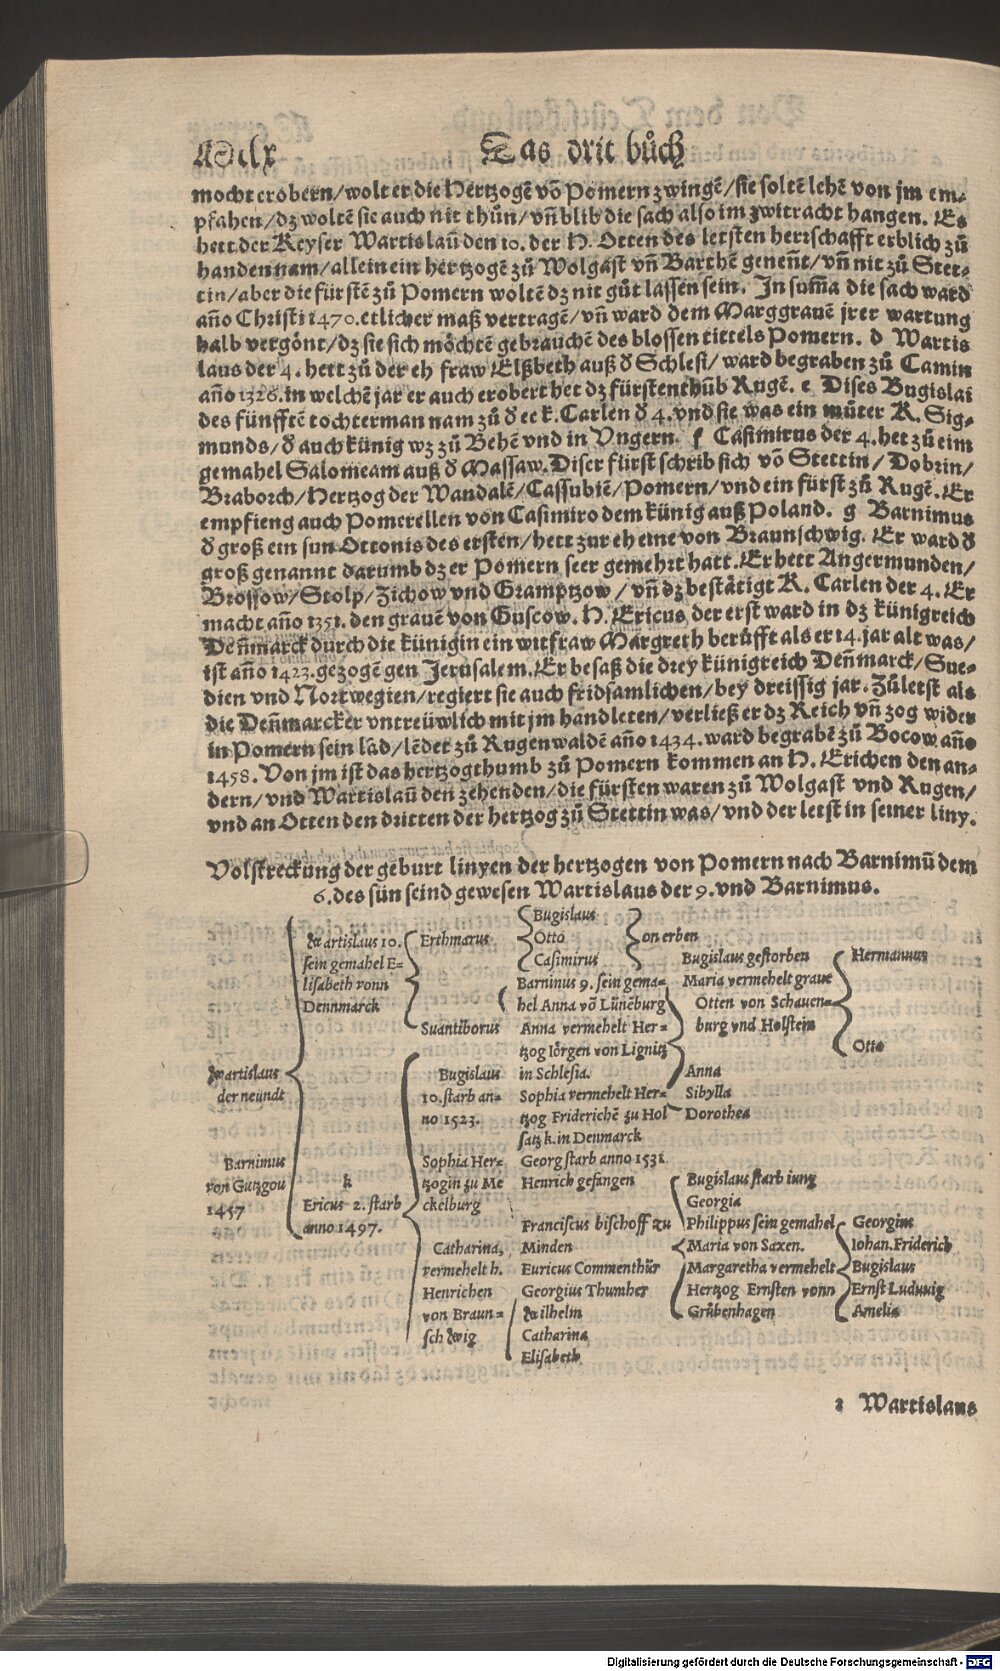 Mclx Das drit bůch
mocht erobern/wolt er die Hertzogē võ Pomern zwingē/sie soltē lehē von jm em-
pfahen/dz woltē sie auch nit thůn/vñ blib die sach also im zwitracht hangen. Es
hett der Keyser Wartislaū den 10. der H. Otten des letsten herrschafft erblich zů
handen nam/allein ein hertzogē zů Wolgast vñ Barthē geneñt/vñ nit zů Stet-
tin/aber die fürstē zů Pomern woltē dz nit gůt lassen sein. In suṁa die sach ward
año Christi 1470. etlicher maß vertragē/vñ ward dem Marggrauē jrer wartung
halb vergönt/dz sie sich möchtē gebrauchē des blossen tittels Pomern. d Wartis
laus der 4. hett zů der eh fraw Elßbeth auß d Schlesi/ward begraben zů Camin
año 1326. in welchē jar er auch erobert het dz fürstenthůb Rugē. e Dises Bugislai
des fünfftē tochterman nam zů d ee k. Carlen d 4. vnd sie was ein můter K. Sig-
munds/d auch künig wz zů Behē vnd in Vngern. f Casimirus der 4. het zů eim
gemahel Salomeam auß d Massaw. Diser fürst schrib sich võ Stettin/Dobrin/
Braborch/Hertzog der Wandalē/Cassubiē/Pomern/vnd ein fürst zů Rugē. Er
empfieng auch Pomerellen von Casimiro dem künig auß Poland. g Barnimus
d groß ein sun Ottonis des ersten/hett zur eh eine von Braunschwig. Er ward d
groß genannt darumb dz er Pomern seer gemehrt hatt. Er hett Angermunden/
Brossow/Stolp/Zichow vnd Gramptzow/vñ dz bestätigt K. Carlen der 4. Er
macht año 1351. den grauē von Guscow. H. Ericus der erst ward in dz künigreich
Deñmarck durch die künigin ein witfraw Margreth berůfft als er 14. jar alt was/
ist año 1423. gezogē gen Jerusalem. Er besaß die drey künigreich Deñmarck/Sue-
dien vnd Nortwegien/regiert sie auch fridsamlichen/bey dreissig jar. Zůletst als
die Deñmarcker vntreüwlich mit jm handleten/verließ er dz Reich vñ zog wider
in Pomern sein lãd/lēdet zů Rugenwaldē año 1434. ward begrabē zů Bocow año
1458. Von jm ist das hertzogthumb zů Pomern kommen an H. Erichen den an-
dern/vnd Wartislaū den zehenden/die fürsten waren zů Wolgast vnd Rugen/
vnd an Otten den dritten der hertzog zů Stettin was/vnd der letst in seiner liny.
Volstreckung der geburt linyen der hertzogen von Pomern nach Barnimū dem
6. des sün seind gewesen Wartislaus der 9. vnd Barnimus.
Wartislaus
der neundt
Barnimus
von Gutzgou
1457
Wartislaus 10.
sein gemahel E-
lisabeth vonn
Dennmarck
k
Ericus 2. starb
anno 1497.
Erthmarus
Suantiborus
Bugislaus
10. starb an-
no 1523.
Sophia Her-
tzogin zu Me
ckelburg
Catharina,
vermehelt h.
Henrichen
von Braun-
schwig
Bugislaus
Otto
Casimirus
on erben
Barninus 9. sein gema-
hel Anna võ Lünēburg
Anna vermehelt Her-
tzog Iörgen von Lignitz
in Schlesia.
Sophia vermehelt Her-
tzog Friderichē zu Hol
satz k. in Denmarck
Georg starb anno 1531
Henrich gefangen
Franciscus bischoff zu
Minden
Euricus Commenthür
Georgius Thumher
Wilhelm
Catharina
Elisabeth
Bugislaus gestorben
Maria vermehelt graue
Otten von Schauen-
burg vnd Holstein
Anna
Sibylla
Dorothea
Bugislaus starb iung
Georgia
Philippus sein gemahel
Maria von Saxen.
Margaretha vermehelt
Hertzog Ernsten vonn
Grůbenhagen
Hermannus
Otto
Georgius
Iohan. Friderich
Bugislaus
Ernst Luduuig
Amelia
i Wartislaus
Digitalisierung gefördert durch die Deutsche Forschungsgemeinschaft - DFG